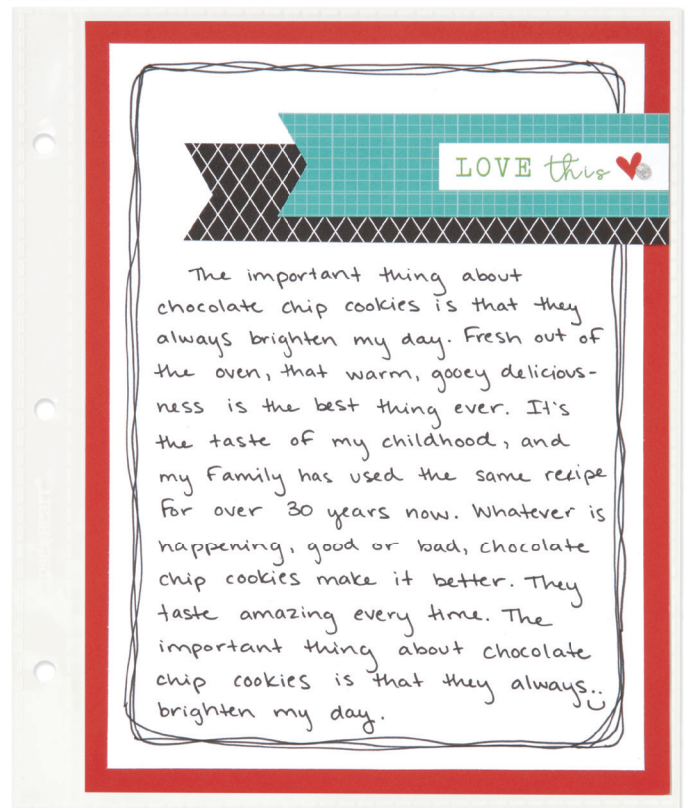 LOVE this
The important thing about
chocolate chip cookies is that they
always brighten my day. Fresh out of
the oven, that warm, gooey delicious-
ness is the best thing ever. It's
the taste of my childhood, and
my Family has used the same recipe
for over 30 years now. Whatever is
happening, good or bad, chocolate
chip cookies make it better. They
taste amazing every time. The
important thing about chocolate
chip cookies is that they always
brighten my day.